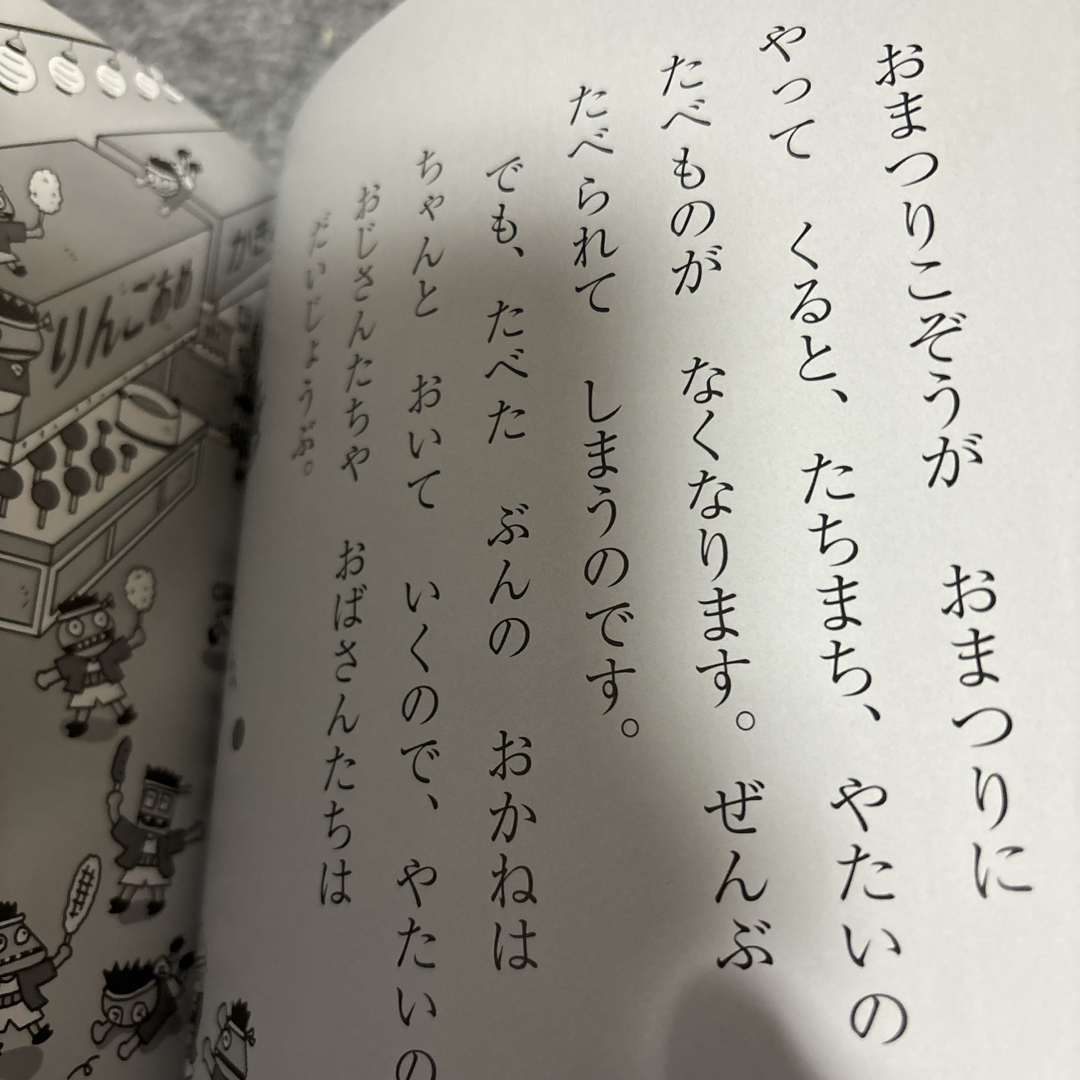 おまつりこぞうが　おまつりに
やって　くると、たちまち、やたいの
たべものが　なくなります。ぜんぶ
たべられて　しまうのです。
でも、たべた　ぶんの　おかねは
ちゃんと　おいて　いくので、やたいの
おじさんたちや　おばさんたちは
だいじょうぶ。
りんごあめ
かき